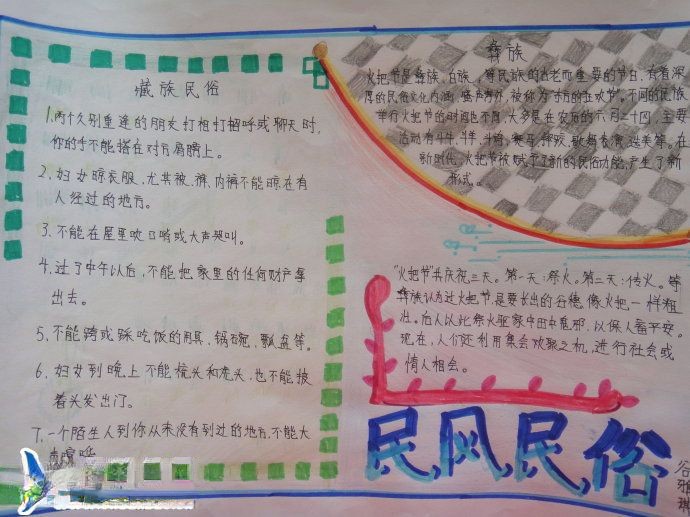 藏族民俗
1.两个久别重逢的朋友打相打招呼或聊天时,
你的手不能搭在对方肩膀上。
2、妇女晾衣服,尤其被、裤、内裤不能晾在有
人经过的地方。
3、不能在屋里吹口哨或大声哭叫。
4.过了中午以后,不能把家里的任何财产拿
出去。
5、不能跨或踩吃饭的用具、锅碗、瓢盆等。
6、妇女到晚上不能梳头和洗头,也不能披
着头发出门。
7、一个陌生人到你从来没有到过的地方,不能大
彝族
火把节是彝族、白族、等民族的古老而重要的节日,有着深
厚的民俗文化内涵,盛声海外,被称为"东方的狂欢节"。不同的民族
举行火把节的时间也不同,大多是在农历的六月二十四,主要
活动有斗牛、斗羊、斗鸡、赛马、摔跤、歌舞表演、选美等。在
新时代,火把节被赋予了新的民俗功能,产生了新
形式。
"火把节"共庆祝三天。第一天:祭火。第二天:传火。等
彝族认为过火把节,是要长出的谷穗,像火把一样粗
壮。后人以此祭火驱家中田中鬼邪,以保人畜平安。
现在,人们还利用集会欢聚之机,进行社会或
情人相会。
民风民俗
谷雅琪